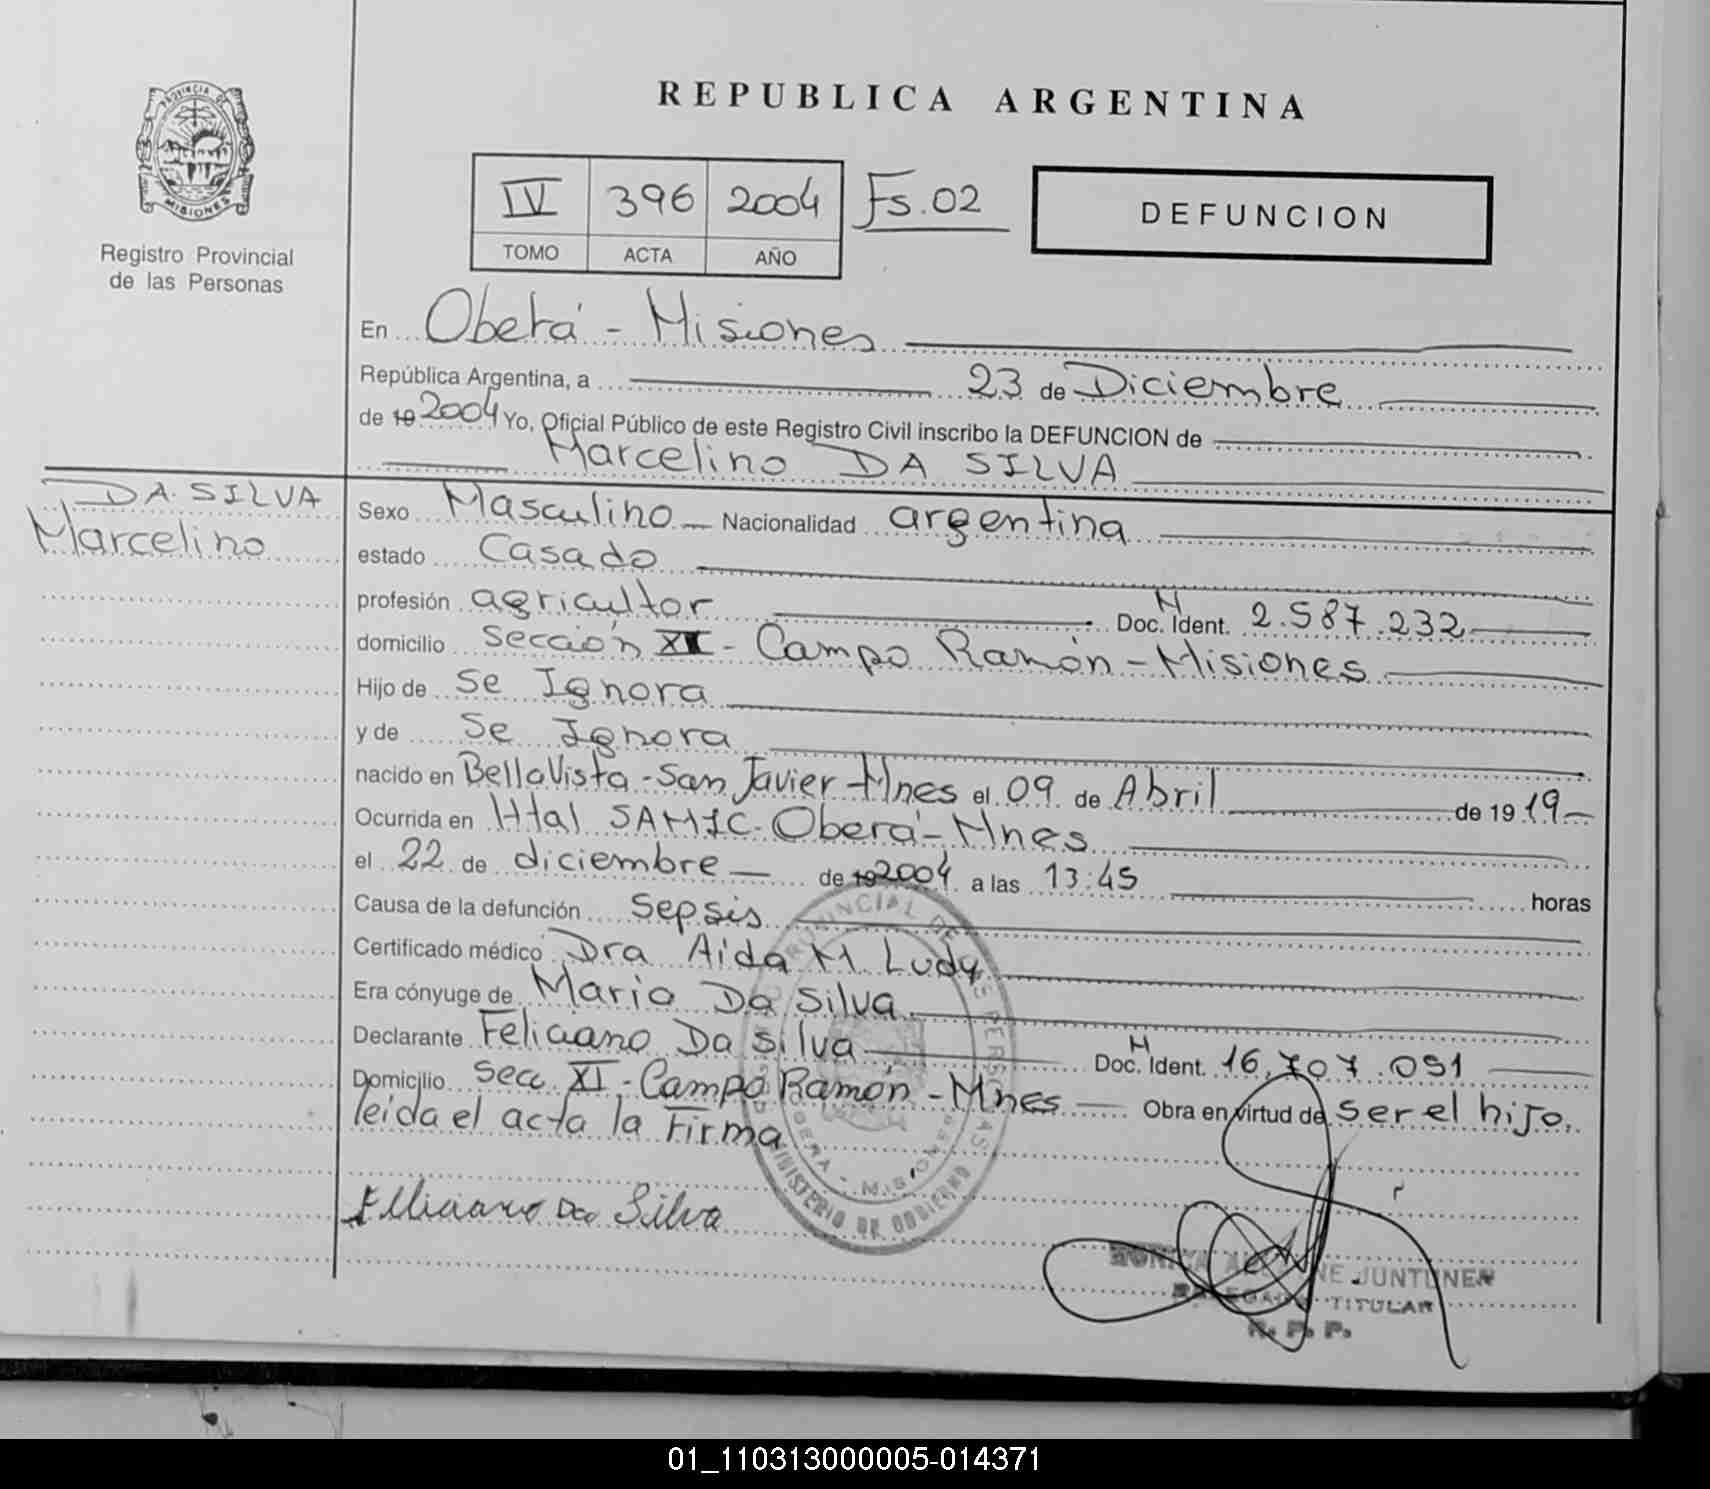 REPUBLICA ARGENTINA
PROVINCIA DE MISIONES
Registro Provincial
de las Personas
IV 396 2004 Fs.02
TOMO ACTA AÑO
DEFUNCION
En Oberá - Misiones
República Argentina, a 23 de Diciembre
de 19 2004 Yo, Oficial Público de este Registro Civil inscribo la DEFUNCION de
Marcelino DA SILVA
DA SILVA
Marcelino
Sexo Masculino Nacionalidad argentina
estado Casado
profesión agricultor Doc. M Ident. 2.587.232
domicilio Sección XI - Campo Ramón - Misiones
Hijo de Se Ignora
y de Se Ignora
nacido en Bella Vista - San Javier - Mnes el 09 de Abril de 19 19
Ocurrida en Htal SAMIC - Oberá - Mnes
el 22 de diciembre de 19 2004 a las 13:45 horas
Causa de la defunción Sepsis
Certificado médico Dra Aida M. Ludy
Era cónyuge de Maria Da Silva
Declarante Feliciano Da silva Doc. M Ident. 16.707.051
Domicilio Secc. XI - Campo Ramón - Mnes Obra en virtud de ser el hijo.
leida el acta la Firma
Feliciano Da Silva
MINISTERIO DE GOBIERNO
OBERA - MISIONES
JUNTUNEN
DELEGADO TITULAR
R. P. P.
01_110313000005-014371